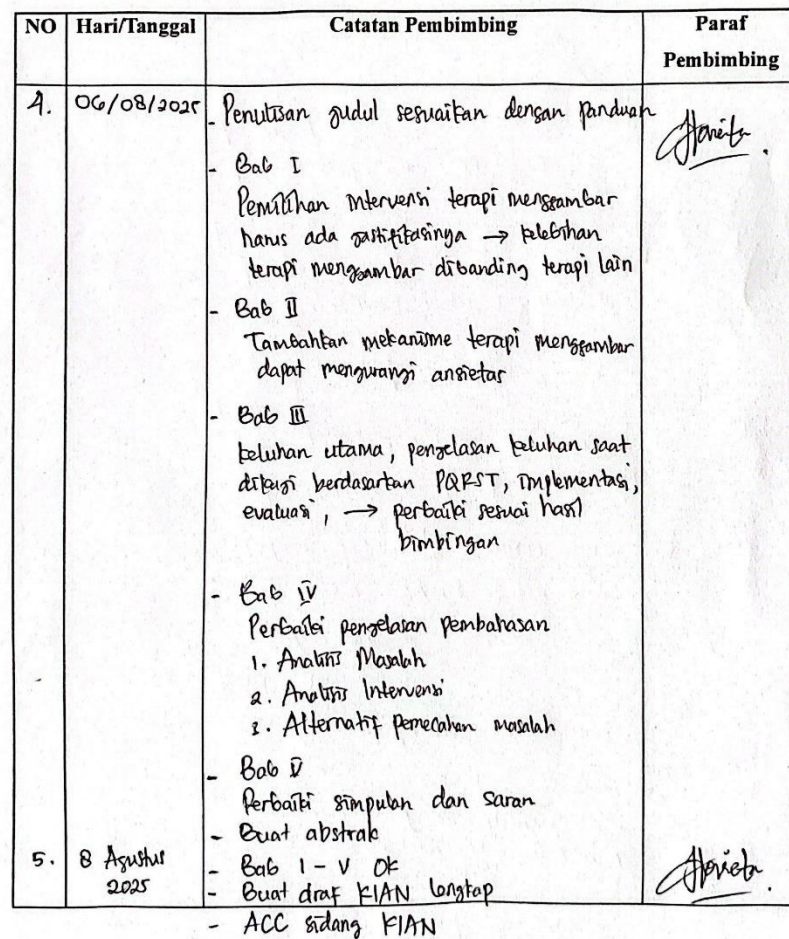 NO Hari/Tanggal Catatan Pembimbing Paraf
Pembimbing
4. 06/08/2025 - Penulisan judul sesuaikan dengan panduan
- Bab I
Pemilihan intervensi terapi menggambar
harus ada jastifikasinya → kelebihan
terapi menggambar dibanding terapi lain
- Bab II
Tambahkan mekanisme terapi menggambar
dapat mengurangi ansietas
- Bab III
keluhan utama, penjelasan keluhan saat
dikaji berdasarkan PQRST, implementasi,
evaluasi, → perbaiki sesuai hasil
bimbingan
- Bab IV
Perbaiki penjelasan pembahasan
1. Analisis Masalah
2. Analisis Intervensi
3. Alternatif pemecahan masalah
- Bab V
Perbaiki simpulan dan saran
- Buat abstrak
5. 8 Agustus - Bab I - V Ok
2025 - Buat draf KIAN lengkap
- ACC sidang KIAN